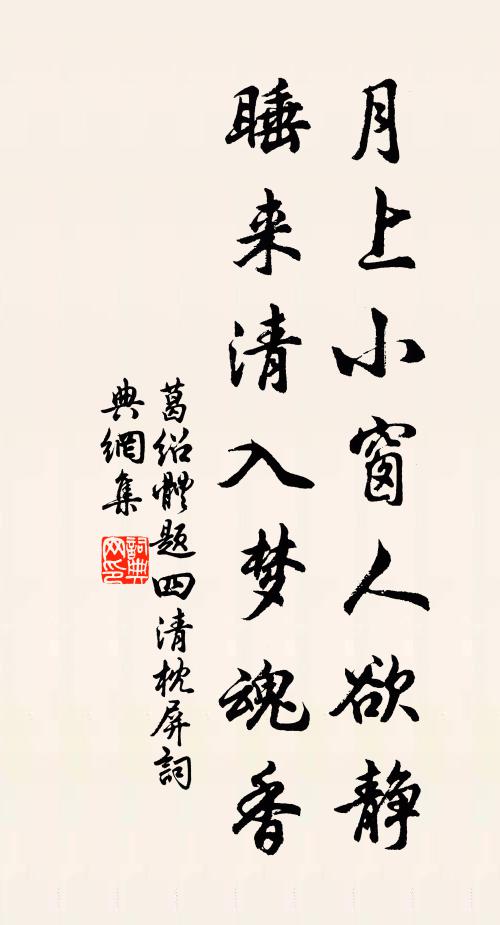 月上小窗人欲静
睡来清入梦魂香
葛绍體题四清枕屏詞
典網集
詞典
网印